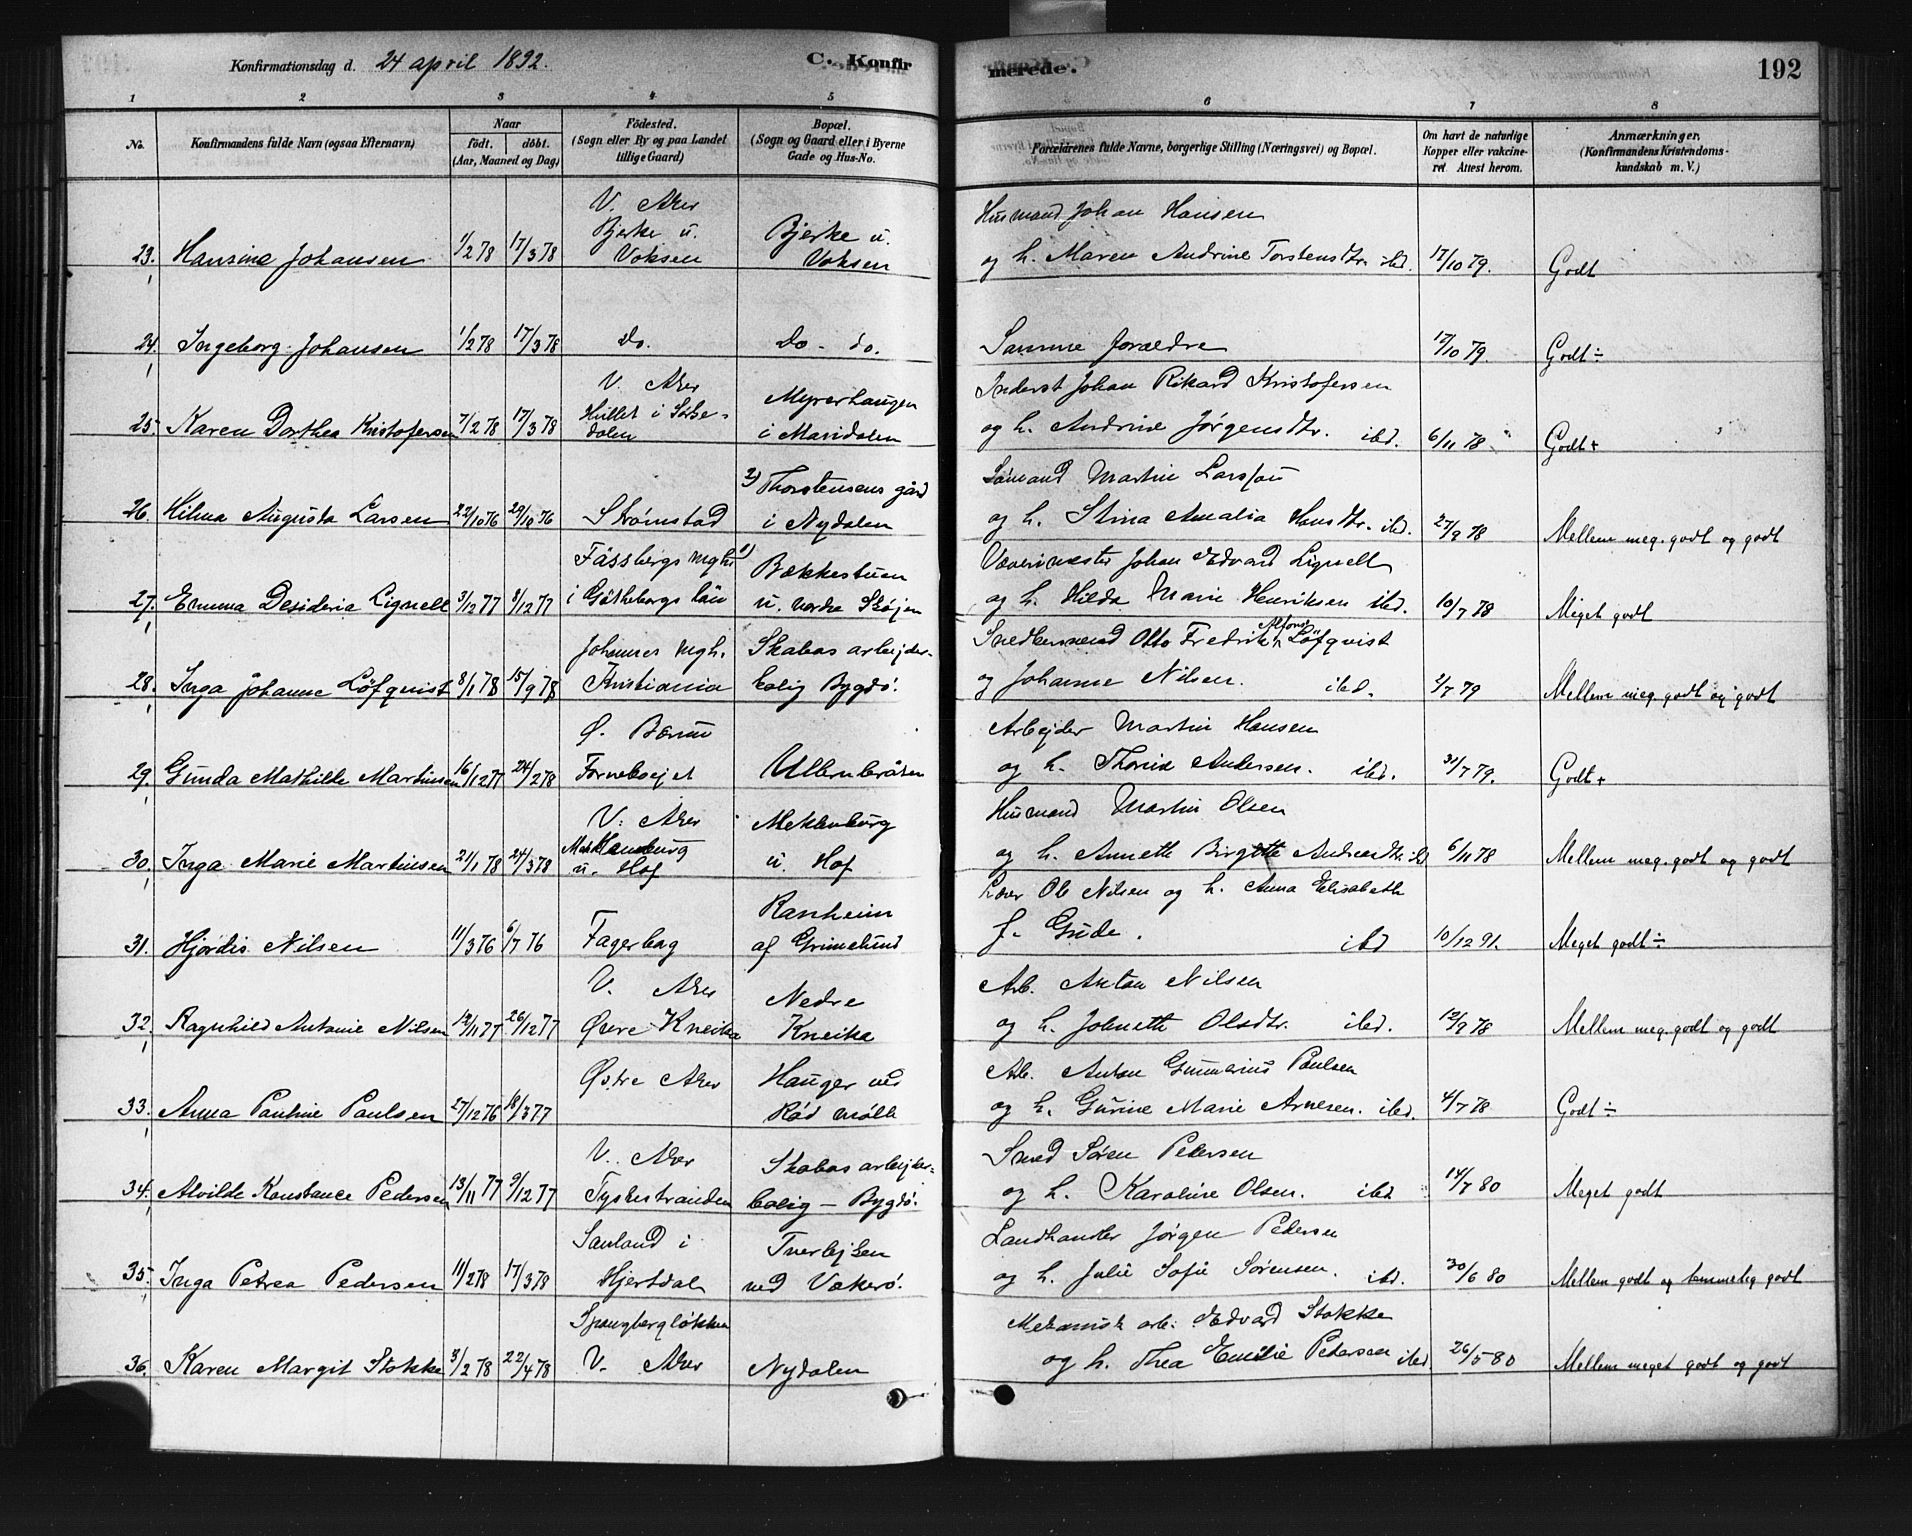 Konfirmationsdag d. 24 april 1892. C. Konfirmerede. 192
1 2 3 4 5 6 7 8
No. Konfirmandens fulde Navn (ogsaa Efternavn) Naar født. døbt. (Aar, Maaned og Dag) Fødested. (Sogn eller By og paa Landet tillige Gaard) Bopæl. (Sogn og Gaard eller i Byerne Gade og Hus-No. Forældrenes fulde Navne, borgerlige Stilling (Næringsvei) og Bopæl. Om havt de naturlige Kopper eller vakcineret Attest herom. Anmærkninger. (Konfirmandens Kristendomskundskab m. V.)
V. Aker Husmand Johan Hansen
Bjerke u. Bjerke u.
23. Hansine Johansen 1/2 78 17/3 78 Voksen Voksen og h. Maren Andrine Torstensdtr. ibd. 17/10 79. Godt
24. Ingeborg Johansen 1/2 78 17/3 78 do. do. do. Samme forældre 17/10 79. Godt ÷
V. Aker Myrerhaugen Inderst Johan Rikard Kristofersen
Hullet i Sørke-
25. Karen Dorthea Kristofersen 7/2 78 17/3 78 dalen i Maridalen og h. Andrine Jørgensdtr. ibd. 6/11 78 Godt +
2) Thorstensens gård Sømand Martin Larsson
26. Hilma Augusta Larsen 22/10 76 29/10 76 Strømstad i Nydalen og h. Stina Amalia Hansdtr. ibd. 27/9 78 Mellem meg. godt og godt
Fässbergs mgh. 1) Bækkestuen Væverimester Johan Edvard Lignell
27. Emma Desideria Lignell 3/12 77 8/12 77 i Götheborgs län u. nordre Skøjen og h. Hilda Marie Henriksen ibd. 10/7 78 Meget godt
Johannes mgh. Skabos arbejder- Snedkersvend Otto Fredrik Alfons Löfqvist
28. Inga Johanne Löfqvist 8/1 78 15/9 78 Kristiania bolig Bygdö. og Johanne Nilsen. ibd. 2/7 79 Mellem meg. godt og godt
Ø. Bærum Arbejder Martin Hansen
29. Gunda Mathilde Martinsen 16/12 77 24/2 78 Fornebuejet Ullernbråten og h. Thorine Andersen. ibd. 31/7 79. Godt +
V. Aker Meklenburg Husmand Martin Olsen
Meklenburg
30. Inga Marie Martinsen 21/1 78 24/3 78 u. Hof u. Hof og h. Annette Birgitte Andreasdtr. ibd 6/11 78 Mellem meg. godt og godt
Ranheim Ole Nilsen og h. Anna Elisabeth
31. Hjørdis Nilsen 11/3 76 6/7 76 Fagerborg af Grimelund f. Gude. ibd 10/12 91. Meget godt ÷
V. Aker Nedre Arb. Anton Nilsen
32. Ragnhild Antonie Nilsen 12/11 77 26/12 77 Øvre Kneika Kneika og h. Johnette Olsdtr. ibd. 12/9 78 Mellem meg. godt og godt
Østre Aker Hauger ved Arb. Anton Gunnerius Paulsen
33. Anna Pauline Paulsen 27/12 76 18/3 77 Rød mølle og h. Gurine Marie Arnesen. ibd. 4/7 78 Godt ÷
V. Aker Skabos arbejder- Smed Søren Pedersen
34. Alvilde Konstance Pedersen 13/11 77 9/12 77 Tyskestranden bolig - Bygdö. og h. Karoline Olsen. ibd 14/7 80 Meget godt
Sauland i Tverlejken Landhandler Jørgen Pedersen
35. Inga Petrea Pedersen 11/2 78 17/3 78 Hjertdal ved Vækerö. og h. Julie Sofie Sørensen. ibd. 30/6 80 Mellem godt og temmelig godt
Spangbergløkken Mekanisk arb. Edvard Stokke
36. Karen Margit Stokke 3/2 78 22/4 78 V. Aker Nydalen og h. Thea Emilie Petersen ibd. 26/5 80 Mellem meget godt og godt